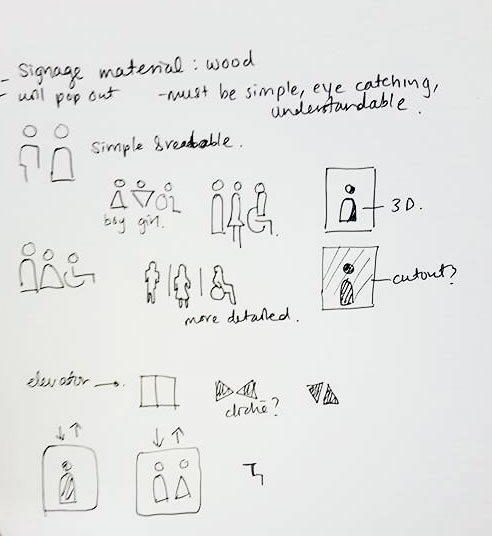 - Signage material : wood
- will pop out - must be simple, eye catching,
understandable.
Simple & readable.
boy girl.
3D.
more detailed.
cutout?
elevator
cliché?